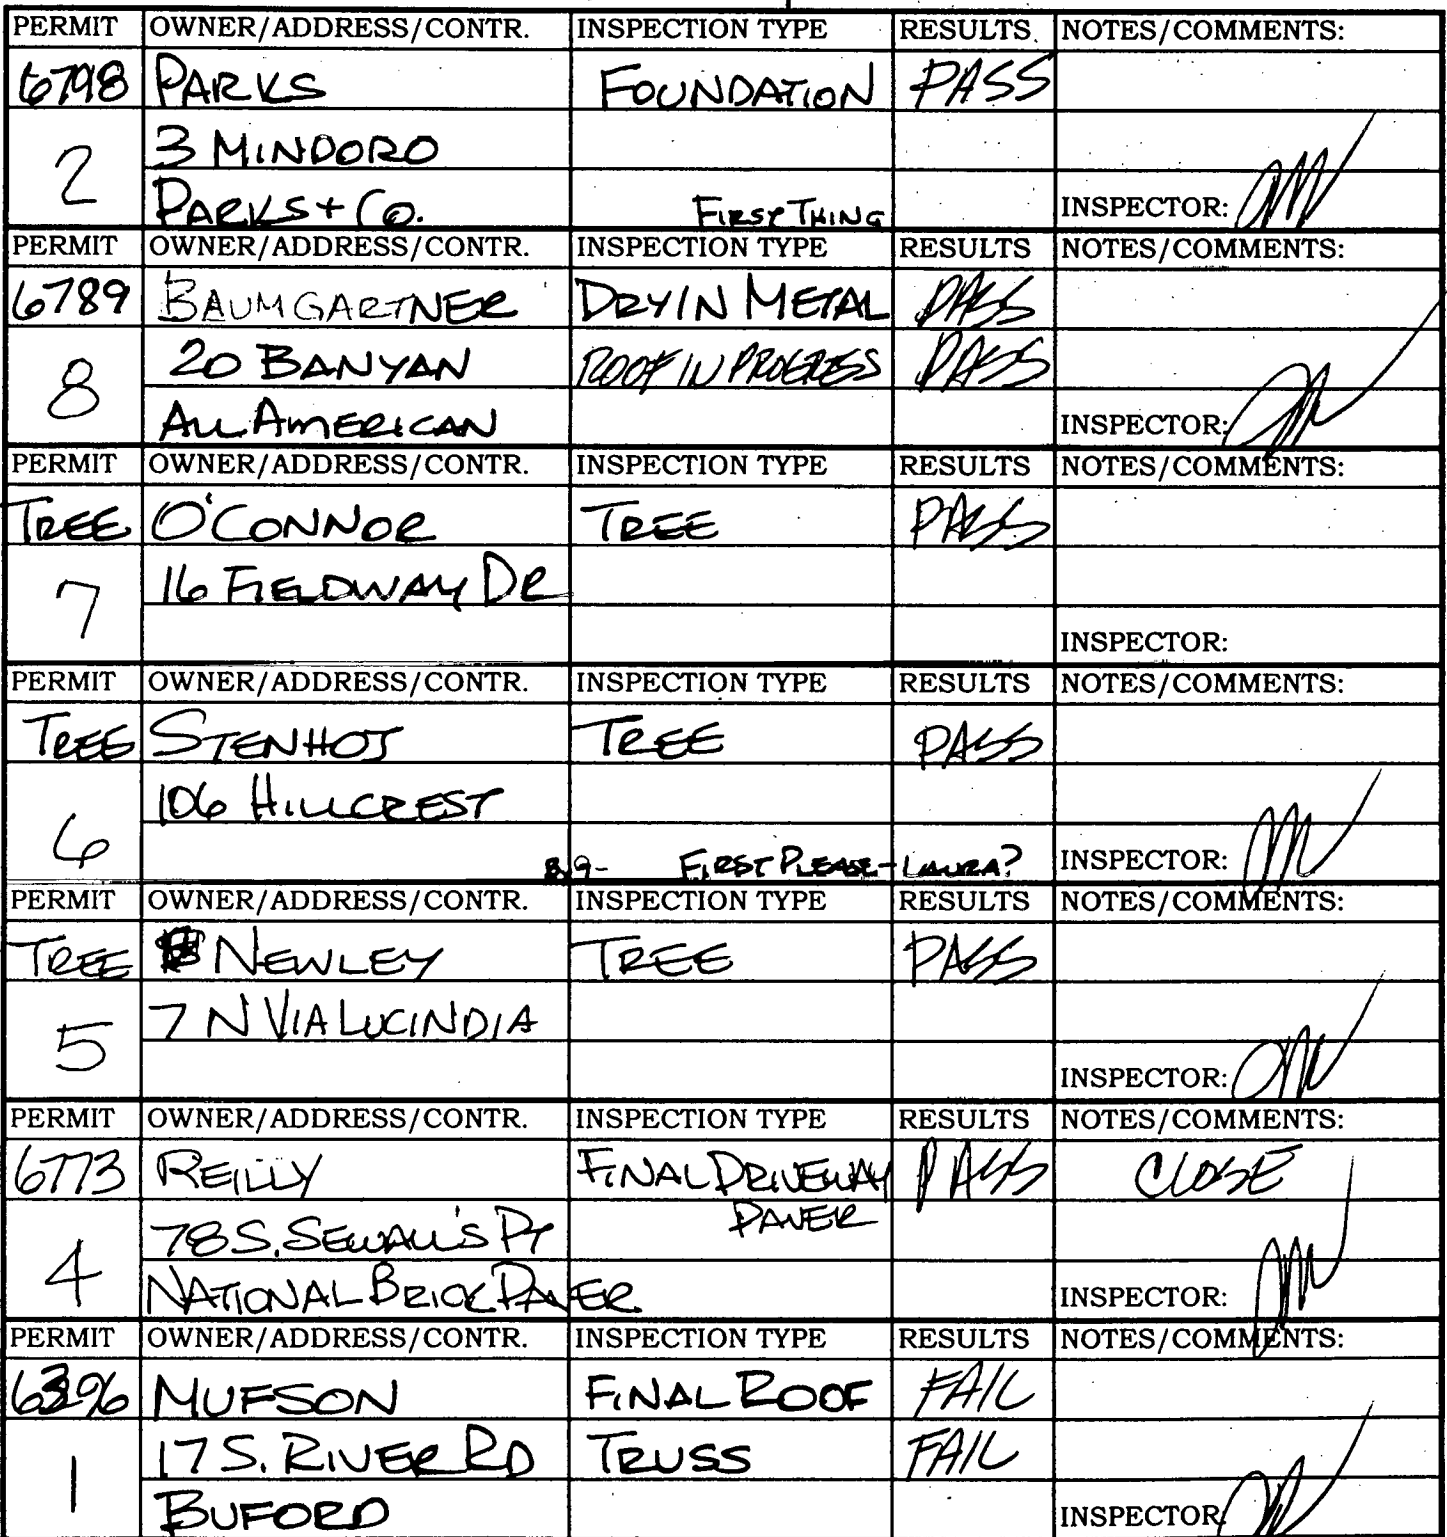 PERMIT OWNER/ADDRESS/CONTR. INSPECTION TYPE RESULTS NOTES/COMMENTS:
6798 PARKS FOUNDATION PASS
2 3 MINDORO
PARKS + CO. FIRST THING INSPECTOR:
PERMIT OWNER/ADDRESS/CONTR. INSPECTION TYPE RESULTS NOTES/COMMENTS:
6789 BAUMGARTNER DRYIN METAL PASS
8 20 BANYAN ROOF IN PROGRESS PASS
ALL AMERICAN INSPECTOR:
PERMIT OWNER/ADDRESS/CONTR. INSPECTION TYPE RESULTS NOTES/COMMENTS:
TREE O'CONNOR TREE PASS
7 16 FIELDWAY DR
INSPECTOR:
PERMIT OWNER/ADDRESS/CONTR. INSPECTION TYPE RESULTS NOTES/COMMENTS:
TREE STENHOJ TREE PASS
6 106 HILLCREST
FIRST PLEASE - LAURA? INSPECTOR:
PERMIT OWNER/ADDRESS/CONTR. INSPECTION TYPE RESULTS NOTES/COMMENTS:
TREE NEWLEY TREE PASS
5 7 N VIA LUCINDIA
INSPECTOR:
PERMIT OWNER/ADDRESS/CONTR. INSPECTION TYPE RESULTS NOTES/COMMENTS:
6773 REILLY FINAL DRIVEWAY PASS CLOSE
4 78 S. SEWALL'S PT PAVER
NATIONAL BRICK PAVER INSPECTOR:
PERMIT OWNER/ADDRESS/CONTR. INSPECTION TYPE RESULTS NOTES/COMMENTS:
MUFSON FINAL ROOF FAIL
1 17 S. RIVER RD TRUSS FAIL
BUFORD INSPECTOR: